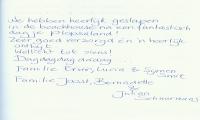 We hebben heerlijk geslapen
in de beachhouse na een fantastisch
dagje Plopsaland!
Zeer goed verzorgd en 'n heerlijk
ontbijt
Wellicht tot ziens!
Dagdagdag
Familie Lucia & Symen
Smit
Familie Joost, Bernadette
& Julian